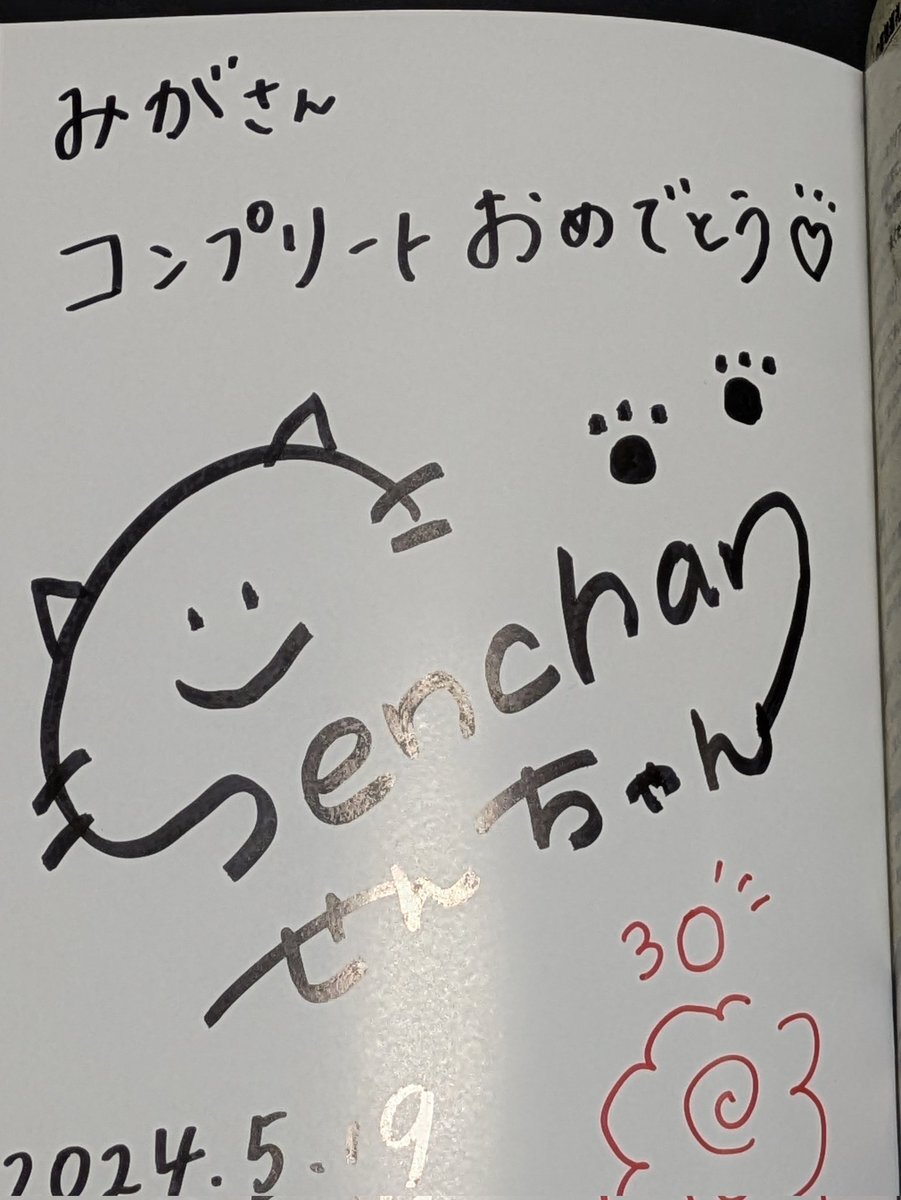 みがさん
コンプリートおめでとう♡
Senchan
せんちゃん
30
2024.5.19